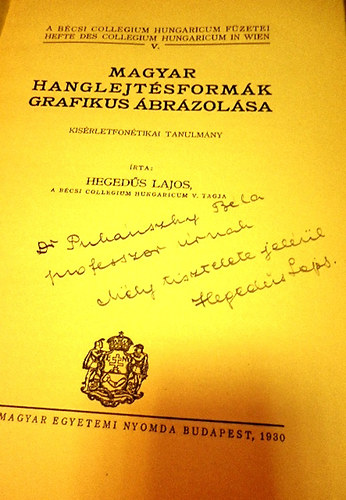 A BÉCSI COLLEGIUM HUNGARICUM FÜZETEI
HEFTE DES COLLEGIUM HUNGARICUM IN WIEN
V.
MAGYAR
HANGLEJTÉSFORMÁK
GRAFIKUS ÁBRÁZOLÁSA
KISÉRLETFONÉTIKAI TANULMÁNY
IRTA:
HEGEDŰS LAJOS,
A BÉCSI COLLEGIUM HUNGARICUM V. TAGJA
Dr Pukánszky Béla
professzor úrnak
Mély tisztelete jeléül
Hegedűs Lajos.
MAGYAR EGYETEMI NYOMDA BUDAPEST, 1930